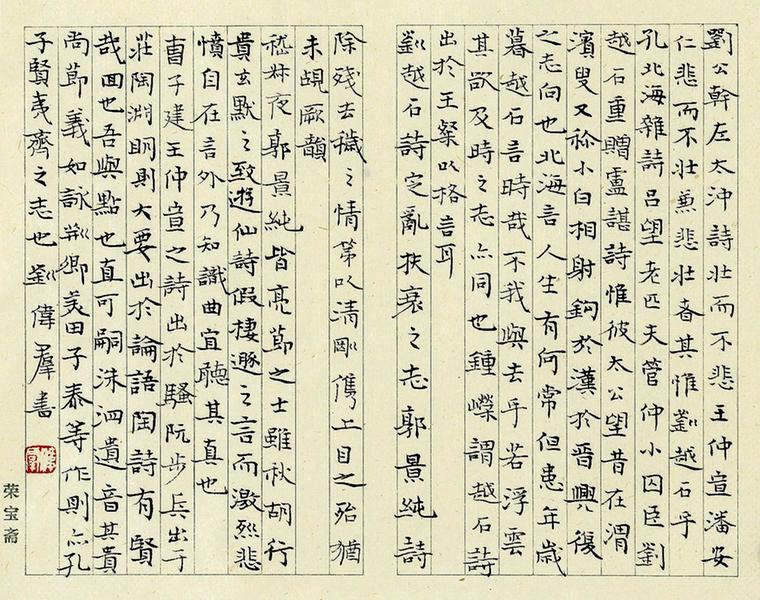 劉公幹左太沖詩壯而不悲王仲宣潘安
仁悲而不壯兼悲壯者其惟劉越石乎
孔北海雜詩呂望老匹夫管仲小囚臣劉
越石重贈盧諶詩惟彼太公望昔在渭
濱叟又稱小白相射鉤於漢於晉興復
之志同也北海言人生有何常但患年歲
暮越石言時哉不我與去乎若浮雲
其欲及時之志亦同也鍾嶸謂越石詩
出於王粲以格言耳
劉越石詩定亂扶衰之志郭景純詩
除殘去穢之情第以清剛儁上目之殆猶
未覘厥韻
嵇叔夜郭景純皆亮節之士雖秋胡行
貴玄默之致遊仙詩假棲遯之言而激烈悲
憤自在言外乃知識曲宜聽其真也
曹子建王仲宣之詩出於騷阮步兵出于
莊陶淵明則大要出於論語陶詩有賢
哉回也吾與點也直可嗣洙泗遺音其貴
尚節義如詠荊卿美田子泰等作則亦孔
子賢夷齊之志也 劉偉羣書
荣宝斋